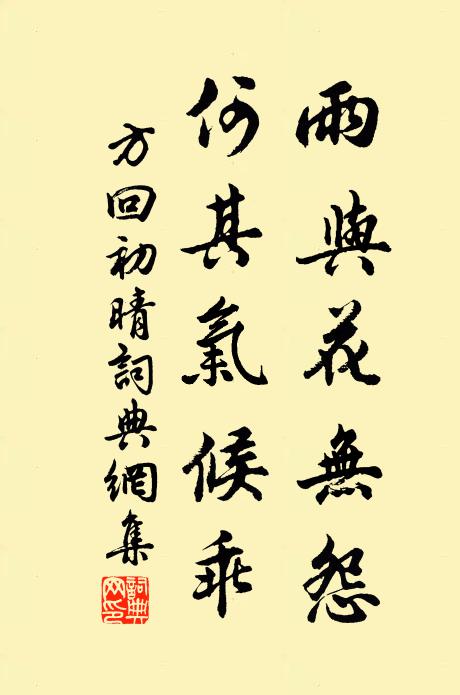 雨與花無怨
何其氣候乖
方回初晴詞典網集
詞典網印